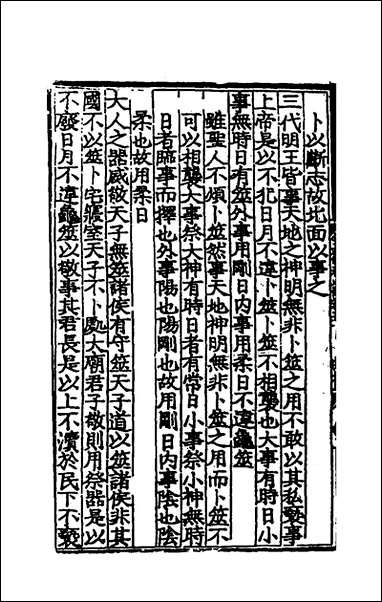 卜以斷志故北面以事之
三代明王皆事天地之神明無非卜筮之用不敢以其私褻事
上帝是以不犯日月不違卜筮卜筮不相襲也大事有時日小
事無時日有筮外事用剛日内事用柔日不違龜筮
雖聖人不煩卜筮然事天地神明無非卜筮之用而卜筮不
可以相襲大事祭大神有時日者有常日小事祭小神無時
日者臨事而擇也外事陽也陽剛也故用剛日内事陰也陰
柔也故用柔日
大人之器威敬天子無筮諸侯有守筮天子道以筮諸侯非其
國不以筮卜宅寢室天子不卜處大廟君子敬則用祭器是以
不廢日月不違龜筮以敬事其君長是以上不瀆於民下不褻